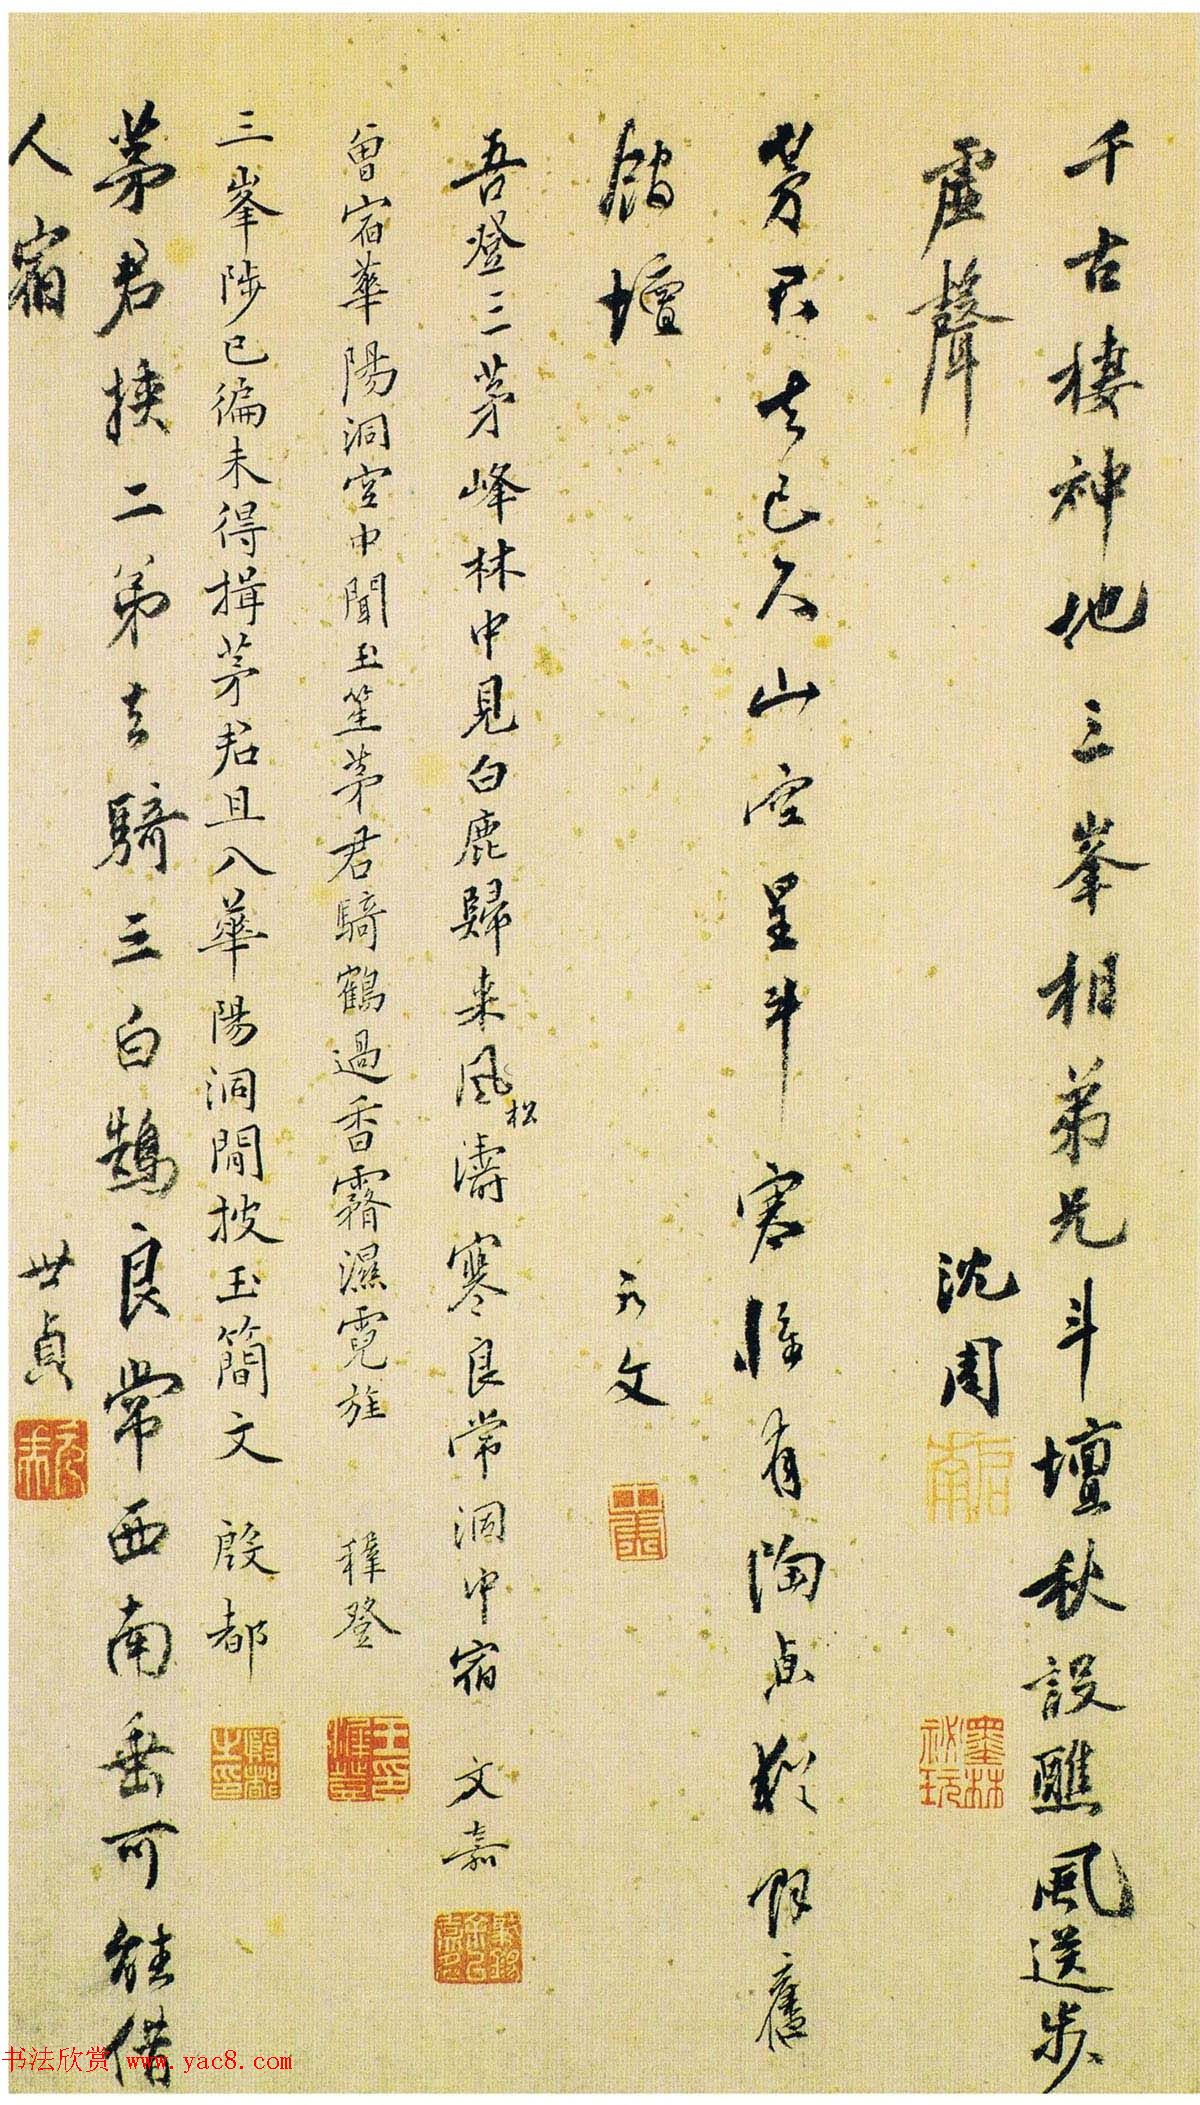 千古棲神地三峯相弟兄斗壇秋設醮風送步
虛聲
沈周
墨林
祕玩
茅君去已久山空星斗寒惟有陶貞觀舊
館壇
元文
吾登三茅峰林中見白鹿歸来風濤寒良常洞中宿 文嘉
松
曾宿華陽洞宫中聞玉笙茅君騎鶴過香霧濕霓旌 穉登
三峯陟已徧未得揖茅君且入華陽洞閒披玉簡文 殷都
殷都
之印
茅君挾二弟去騎三白鵠良常西南垂可能借
人宿
世貞
书法欣赏 www.yac8.com